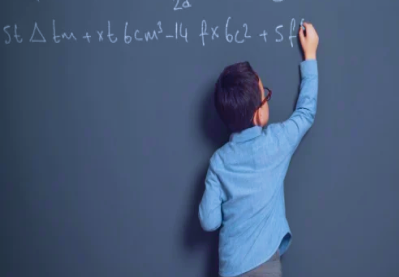 2a
5t Δ tm + xt 6cm³ -14 fx6c2 + 5f